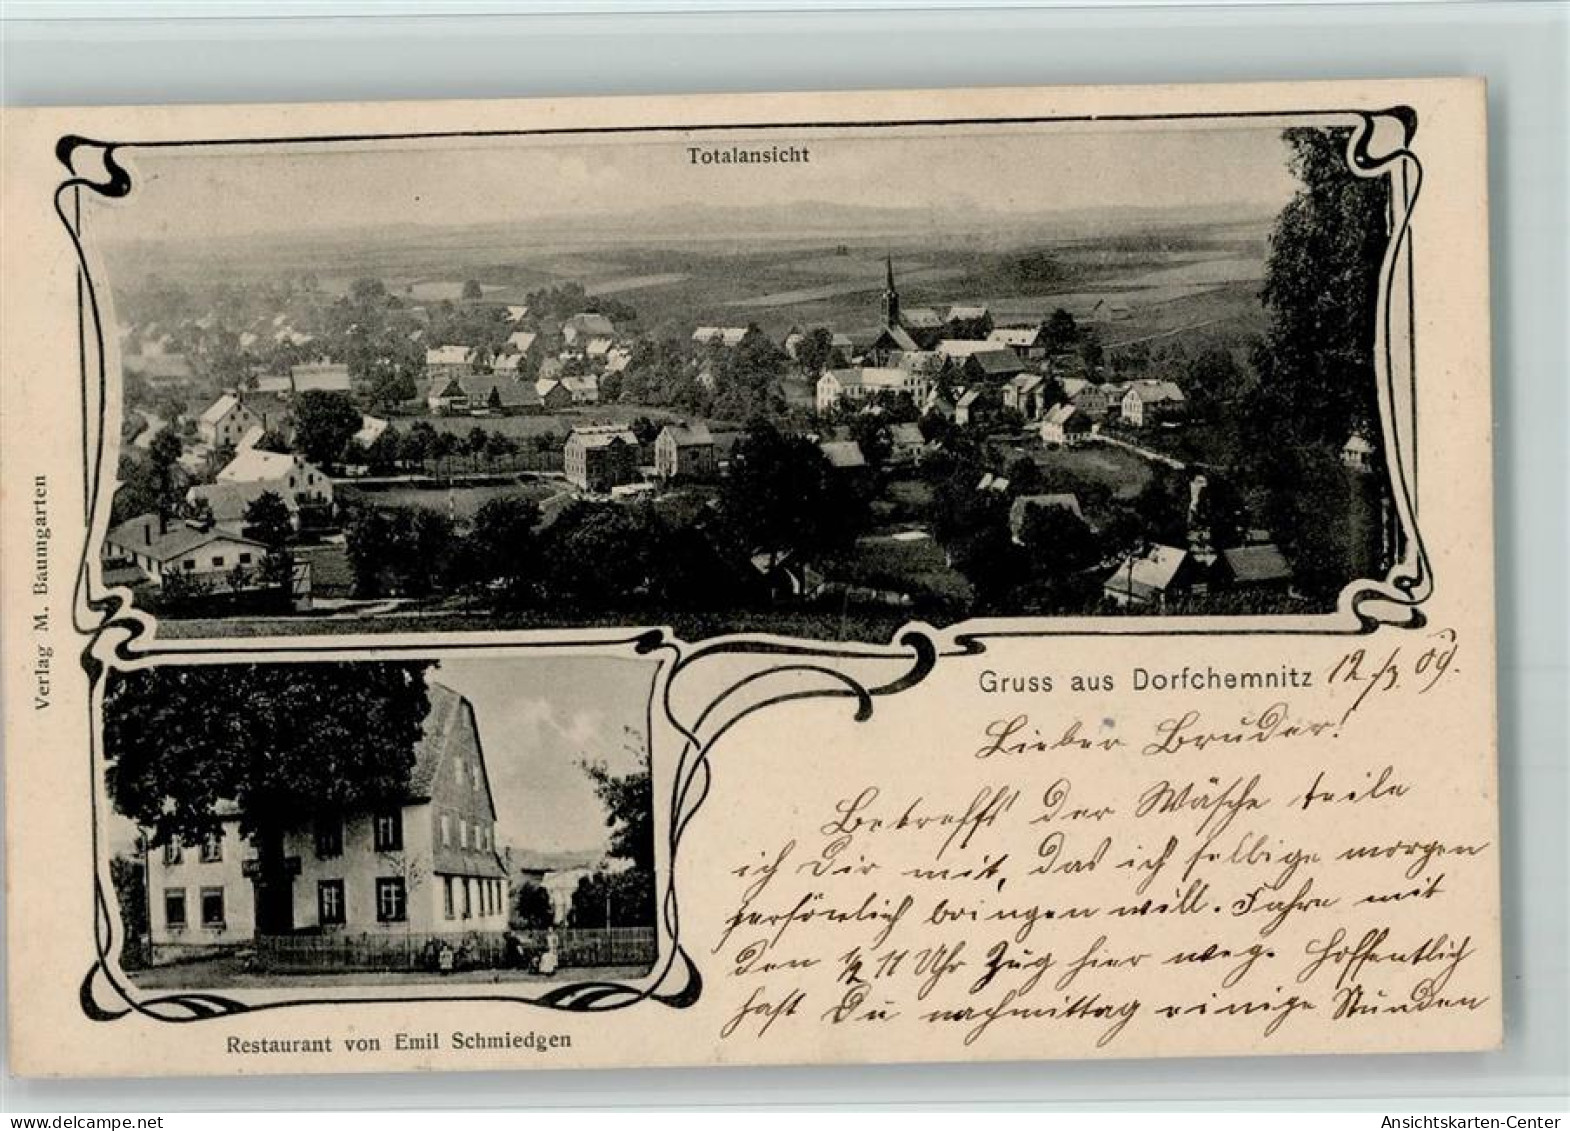 Totalansicht
Verlag M. Baumgarten
Gruss aus Dorfchemnitz 12/3. 09.
Lieber Bruder!
Betreffs der Wäsche teile
ich Dir mit, das ich selbige morgen
persönlich bringen will. Fahre mit
den 1/2 11 Uhr Zug hier weg. Hoffentlich
hast Du nachmittag einige Stunden
Restaurant von Emil Schmiedgen
oldthing.de
Ansichtskarten-Center